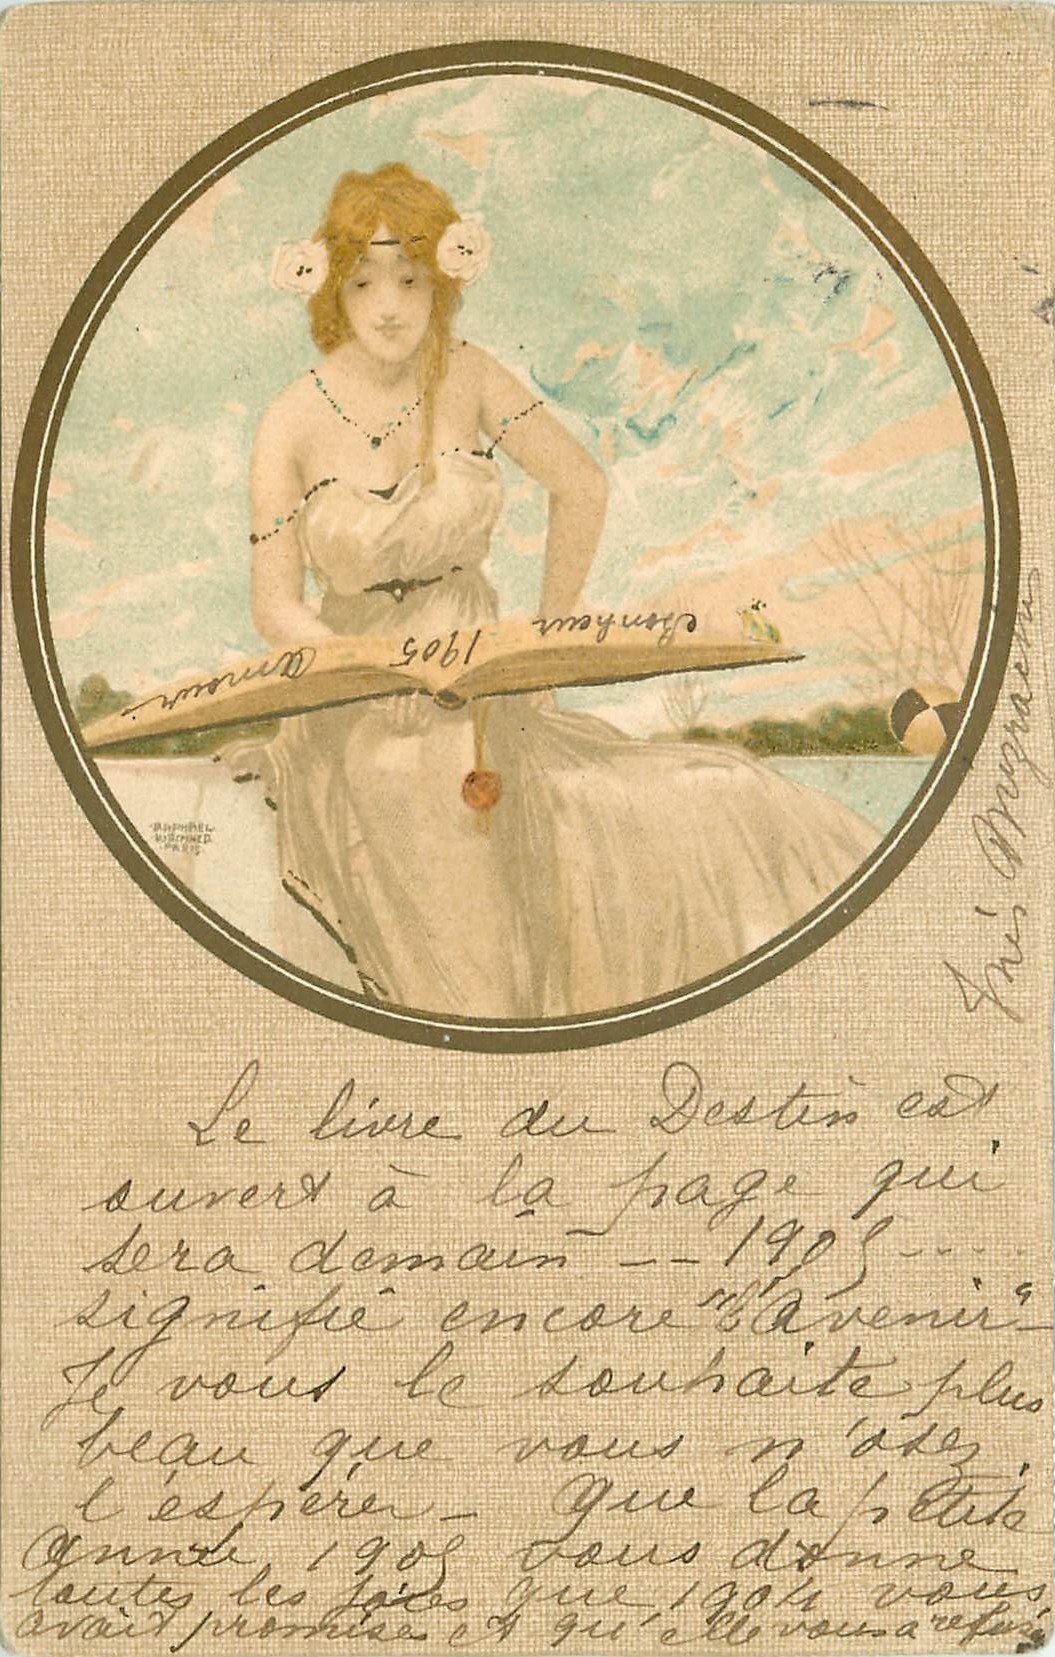 amour
1905
Bonheur
RAPHAEL
KIRCHNER
PARIS
Le livre du Destin est
ouvert à la page qui
sera demain -- 1905 ....
signifie encore "l'avenir"-
Je vous le souhaite plus
beau que vous n'osez
l'espérer - Que la petite
Année 1905 vous donne
toutes les joies que 1904 vous
avait promises et qu'elle vous a refusé